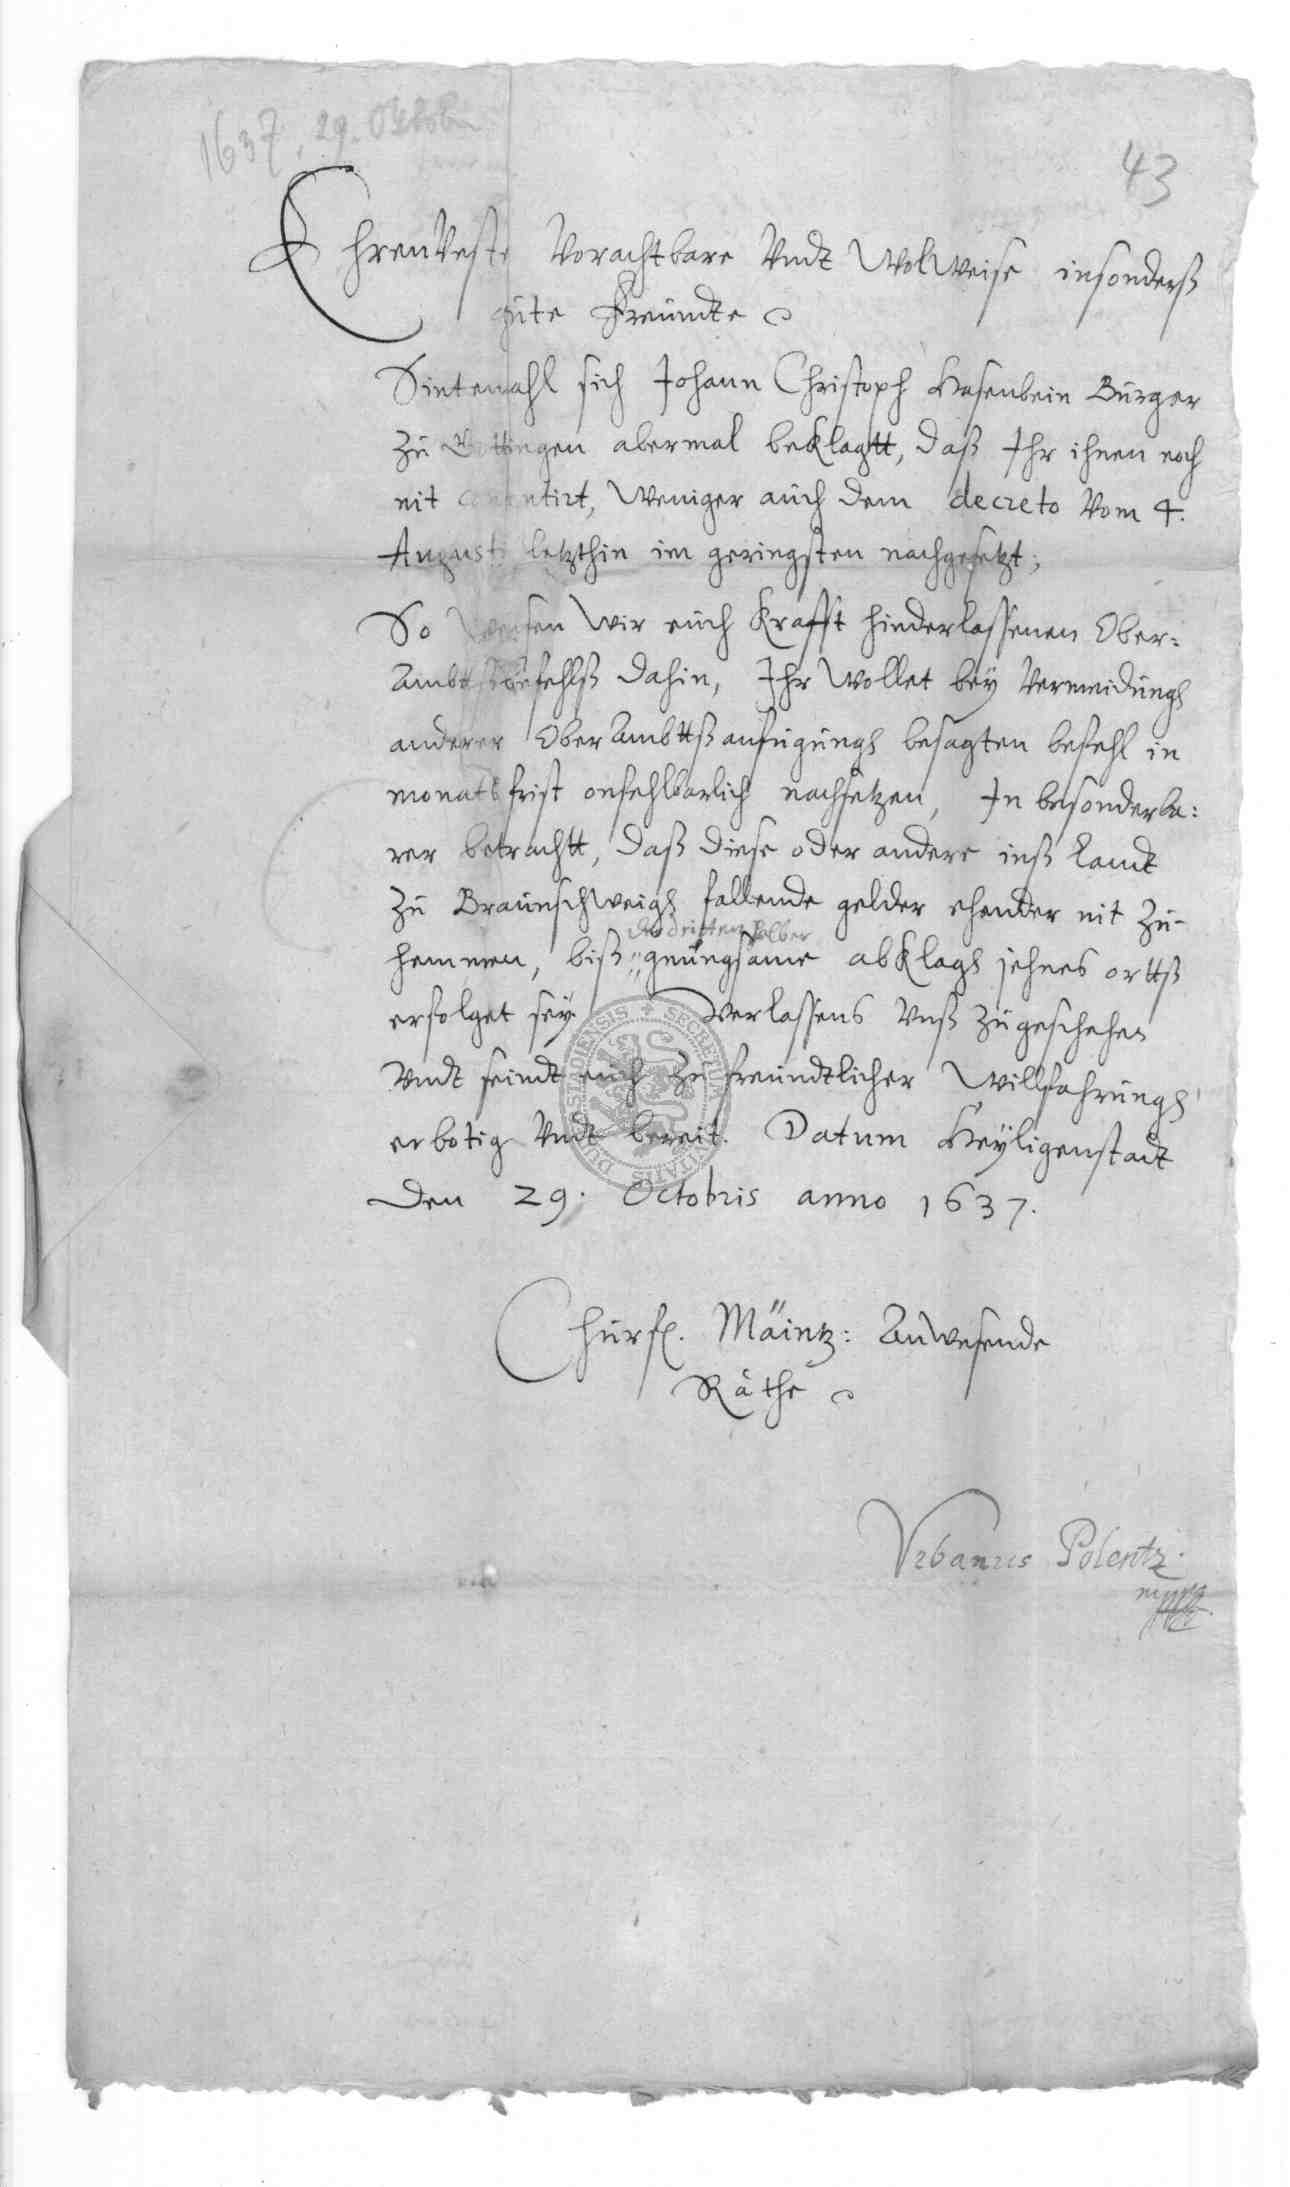 1637, 29. Oktober
43
EhrenVeste Vorachtbare Vndt WolWeise insonderß
gute Freundte
Sintemahl sich Johann Christoph Hasenbein Burger
zu Göttingen abermal beklagtt, daß Ihr ihnen noch
nit contentirt, Weniger auch dem decreto Vom 4.
Augusti letzthin im geringsten nachgesetzt;
So Weisen Wir euch Krafft hinderlassenen Ober=
Ambttßbefehlß dahin, Ihr Wollet bey Vermeidungh
anderer OberAmbttßanfugungh besagten befehl in
monats frist onfehlbarlich nachsetzen, In besonderba:
rer betrachtt, daß diese oder andere inß Landt
zu Braunschweigh fallende gelder ehender nit zu-
hemmen, biß
dritten halber
gnungsame abklagh jehnes orttß
erfolget sey. Verlassens Vnß zugeschehen
Vndt seindt euch zu freundtlicher Willfahrungh
erbotig Vndt bereit. Datum Heyligenstadt
den 29. Octobris anno 1637.
SECRETUM CIVITATIS DUDERSTADIENSIS
Churf. Mäintz: Anwesende
Räthe
Vrbanus Polentz
mppra